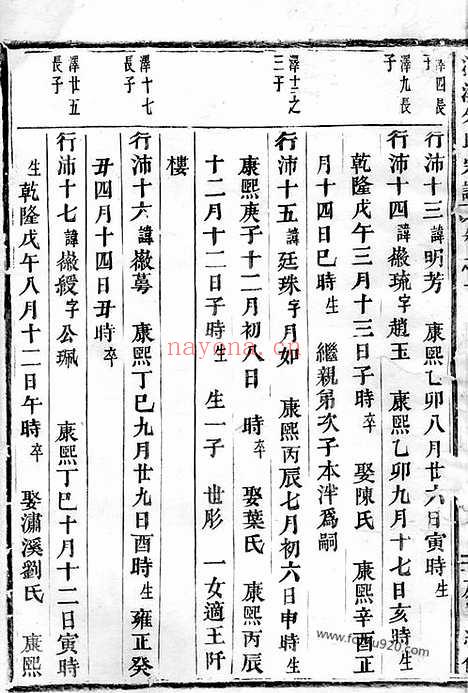 澤四長子
行沛十三諱明芳 康熙乙卯八月廿六日寅時生
澤九長子
行沛十四諱㵟琉字趙玉 康熙乙卯九月十七日亥時生
乾隆戊午三月十三日子時卒 娶陳氏 康熙辛酉正
月十四日巳時生 繼親弟次子本泮爲嗣
澤十三之三子
行沛十五諱廷珠字月如 康熙丙辰七月初六日申時生
康熙庚子十二月初八日 時卒 娶葉氏 康熙丙辰
十二月十二日子時生 生一子 世彤 一女適王阡
樓
澤十七長子
行沛十六諱㵟蕚 康熙丁巳九月廿九日酉時生 雍正癸
丑四月十四日丑時卒
澤廿五長子
行沛十七諱㵟綬字公珮 康熙丁巳十月十二日寅時
生 乾隆戊午八月十二日午時卒 娶瀟溪劉氏 康熙
nayona.cn
www.fozpu920.com